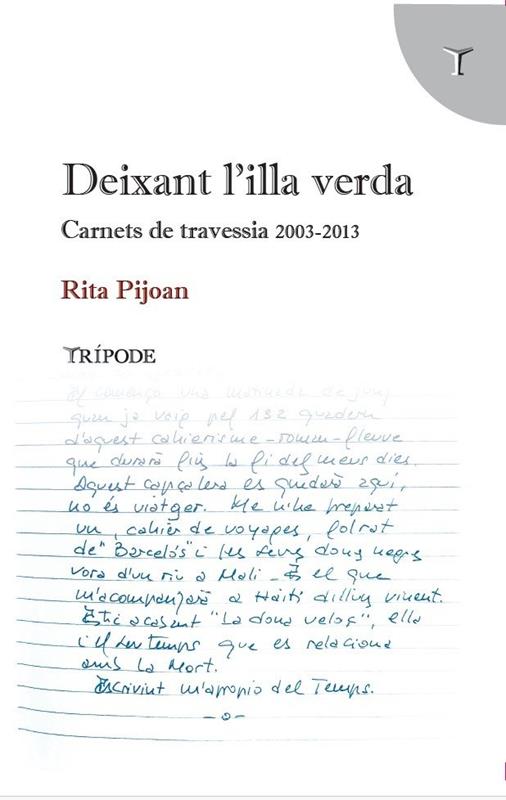 Deixant l'illa verda
Carnets de travessia 2003-2013
Rita Pijoan
TRÍPODE
comença una matinada de juny
quan ja vaig pel 132 quadern
d'aquest cahierisme-roman-fleuve
que durarà fins la fi del meus dies.
Aquest capçalera es quedarà aquí,
no és viatger. Me n'he preparat
un, cahier de voyages, folrat
de "Barcelós" i les seves dones negres
vora d'un riu a Mali. És el que
m'acompanyarà a Haití dilluns vinent.
Estic acabant "La dona veloç", ella
i el seu temps que es relaciona
amb la Mort.
Escrivint m'apropio del Temps.
-o-